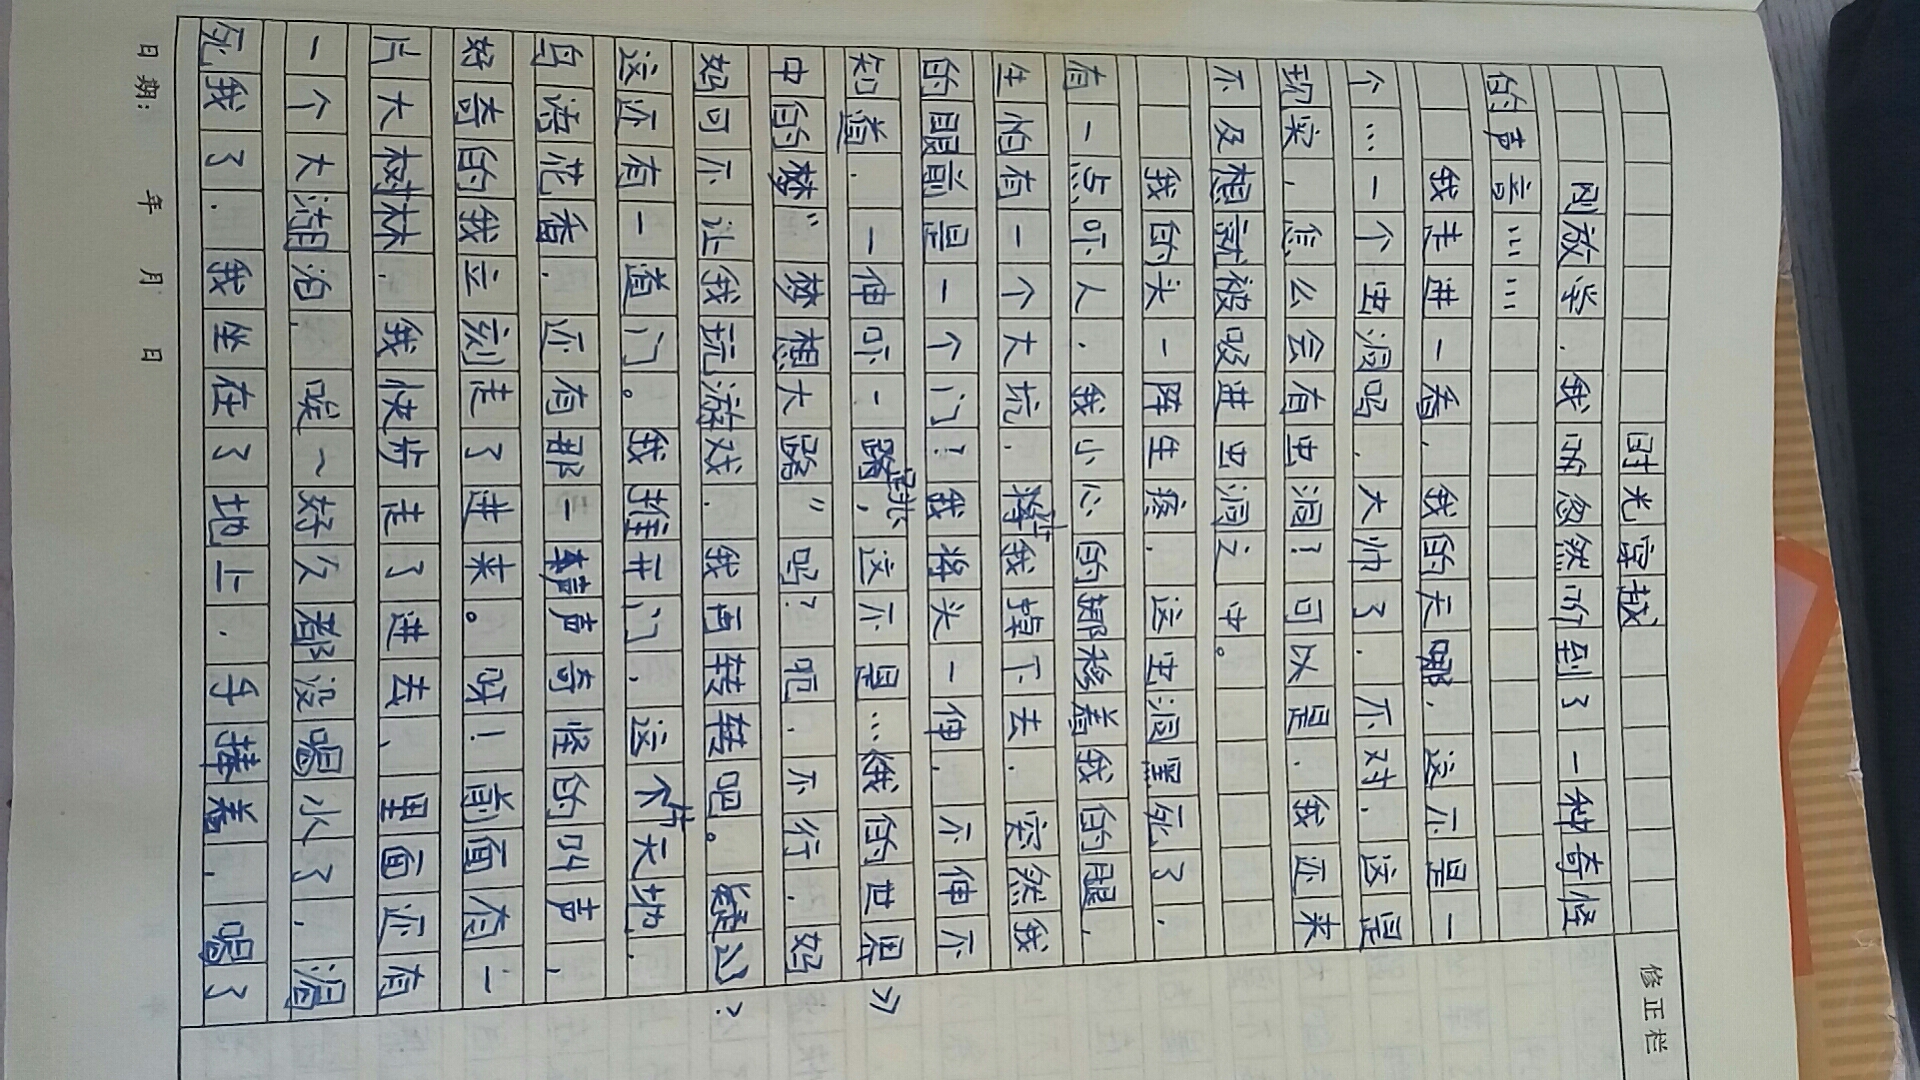 时光穿越
刚放学.我的忽然听到了一种奇怪
的声音⋯⋯
我走进一看.我的天哪.这不是一
个…一个虫洞吗.大帅了.不对.这是
现实,怎么会有虫洞?可以是.我还来
不及想就被吸进虫洞之中。
我的头一阵生疼.这虫洞黑死了,
有一点吓人.我小心的挪移着我的腿,
生怕有一个大坑.将我掉下去.突然我
的眼前是一个门?我将头一伸.不伸不
知道.一伸吓一跳,这不是…《我的世界》
中的梦"梦想大路"吗?呃.不行.妈
妈可不让我玩游戏.我再转转吧。
这还有一道门。我推开门.这片天地.
鸟语花香.还有那一声声奇怪的叫声,
好奇的我立刻走了进来。呀!前面有一
片大树林.我快步走了进去,里面还有
一个大湖泊.唉~好久都没喝水了.渴
死我了.我坐在了地上.手捧着.喝了
修正栏
日期: 年 月 日